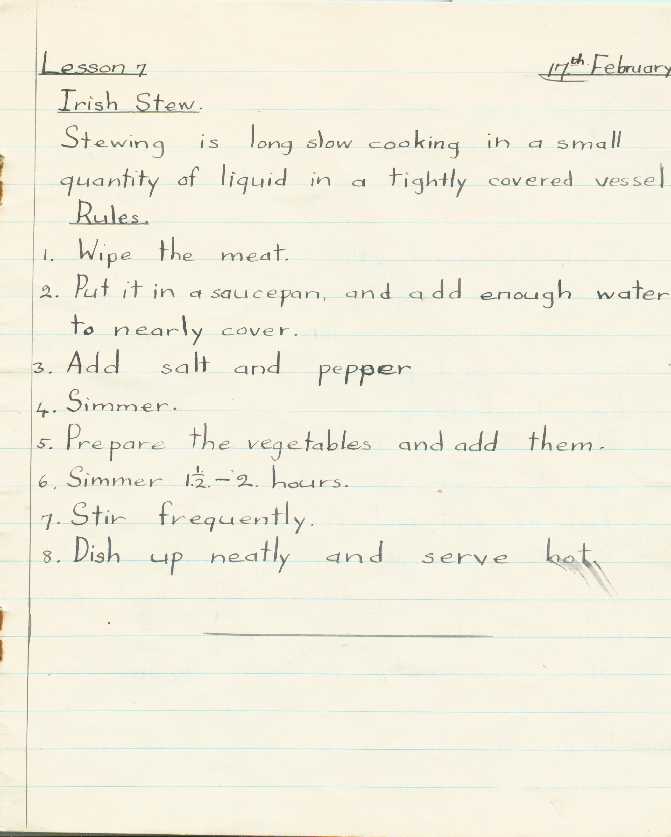 Lesson 7 17th February
Irish Stew.
Stewing is long slow cooking in a small
quantity of liquid in a tightly covered vessel
Rules.
1. Wipe the meat.
2. Put it in a saucepan, and add enough water
to nearly cover.
3. Add salt and pepper
4. Simmer.
5. Prepare the vegetables and add them.
6. Simmer 1½ - 2. hours.
7. Stir frequently.
8. Dish up neatly and serve hot.